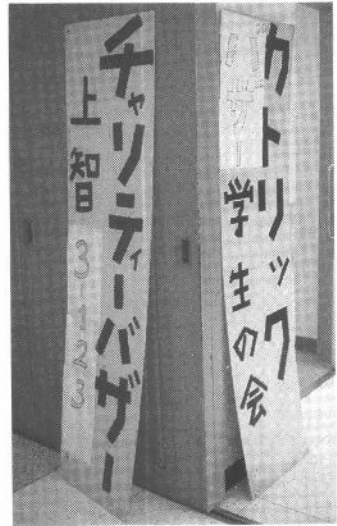 カトリック
バザー
学生の会
チャリティーバザー
上智
3-123